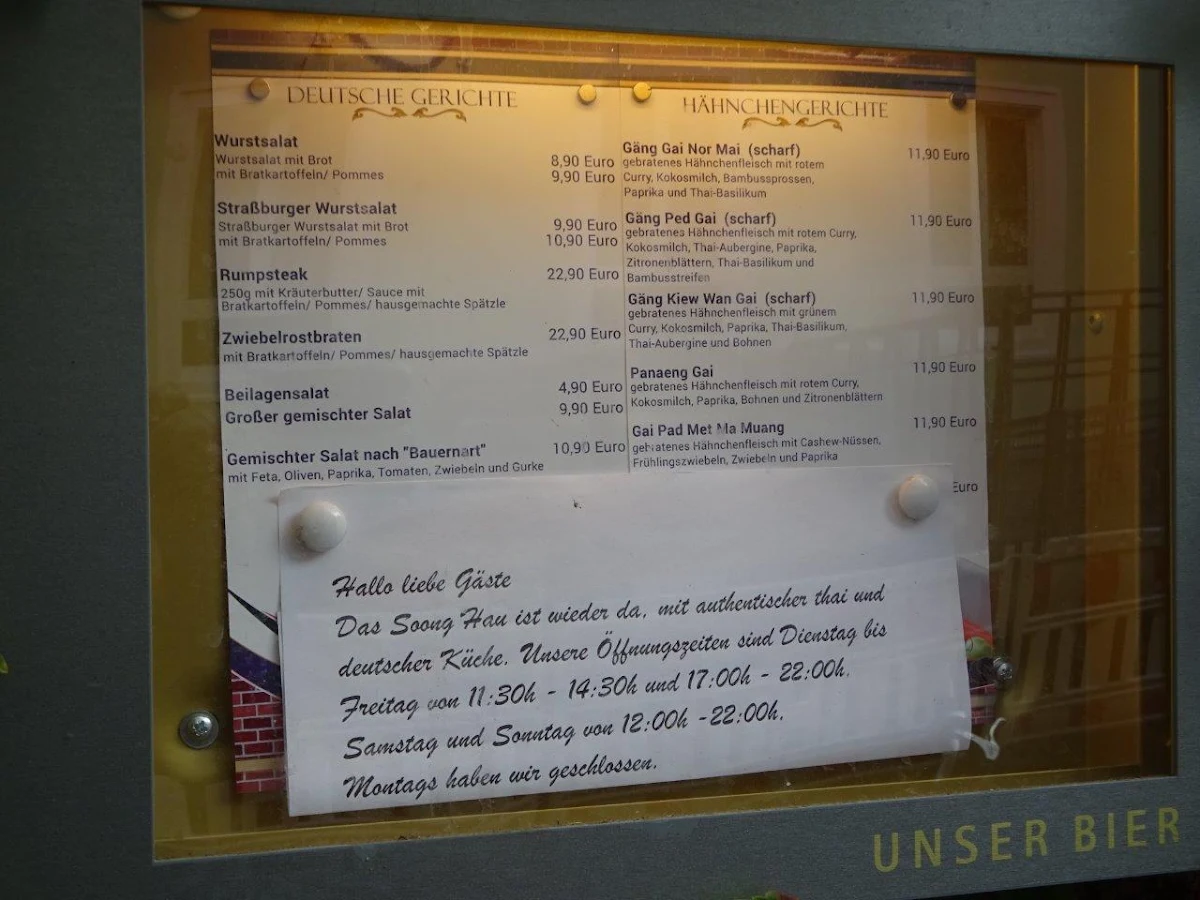 DEUTSCHE GERICHTE
Wurstsalat
Wurstsalat mit Brot 8,90 Euro
mit Bratkartoffeln/ Pommes 9,90 Euro
Straßburger Wurstsalat
Straßburger Wurstsalat mit Brot 9,90 Euro
mit Bratkartoffeln/ Pommes 10,90 Euro
Rumpsteak 22,90 Euro
250g mit Kräuterbutter/ Sauce mit
Bratkartoffeln/ Pommes/ hausgemachte Spätzle
Zwiebelrostbraten 22,90 Euro
mit Bratkartoffeln/ Pommes/ hausgemachte Spätzle
Beilagensalat 4,90 Euro
Großer gemischter Salat 9,90 Euro
Gemischter Salat nach "Bauernart" 10,90 Euro
mit Feta, Oliven, Paprika, Tomaten, Zwiebeln und Gurke
HÄHNCHENGERICHTE
Gäng Gai Nor Mai (scharf) 11,90 Euro
gebratenes Hähnchenfleisch mit rotem
Curry, Kokosmilch, Bambussprossen,
Paprika und Thai-Basilikum
Gäng Ped Gai (scharf) 11,90 Euro
gebratenes Hähnchenfleisch mit rotem Curry,
Kokosmilch, Thai-Aubergine, Paprika,
Zitronenblättern, Thai-Basilikum und
Bambusstreifen
Gäng Kiew Wan Gai (scharf) 11,90 Euro
gebratenes Hähnchenfleisch mit grünem
Curry, Kokosmilch, Paprika, Thai-Basilikum,
Thai-Aubergine und Bohnen
Panaeng Gai 11,90 Euro
gebratenes Hähnchenfleisch mit rotem Curry,
Kokosmilch, Paprika, Bohnen und Zitronenblättern
Gai Pad Met Ma Muang 11,90 Euro
gebratenes Hähnchenfleisch mit Cashew-Nüssen,
Frühlingszwiebeln, Zwiebeln und Paprika
Euro
Hallo liebe Gäste
Das Soong Hau ist wieder da, mit authentischer thai und
deutscher Küche. Unsere Öffnungszeiten sind Dienstag bis
Freitag von 11:30h - 14:30h und 17:00h - 22:00h.
Samstag und Sonntag von 12:00h -22:00h.
Montags haben wir geschlossen.
UNSER BIER